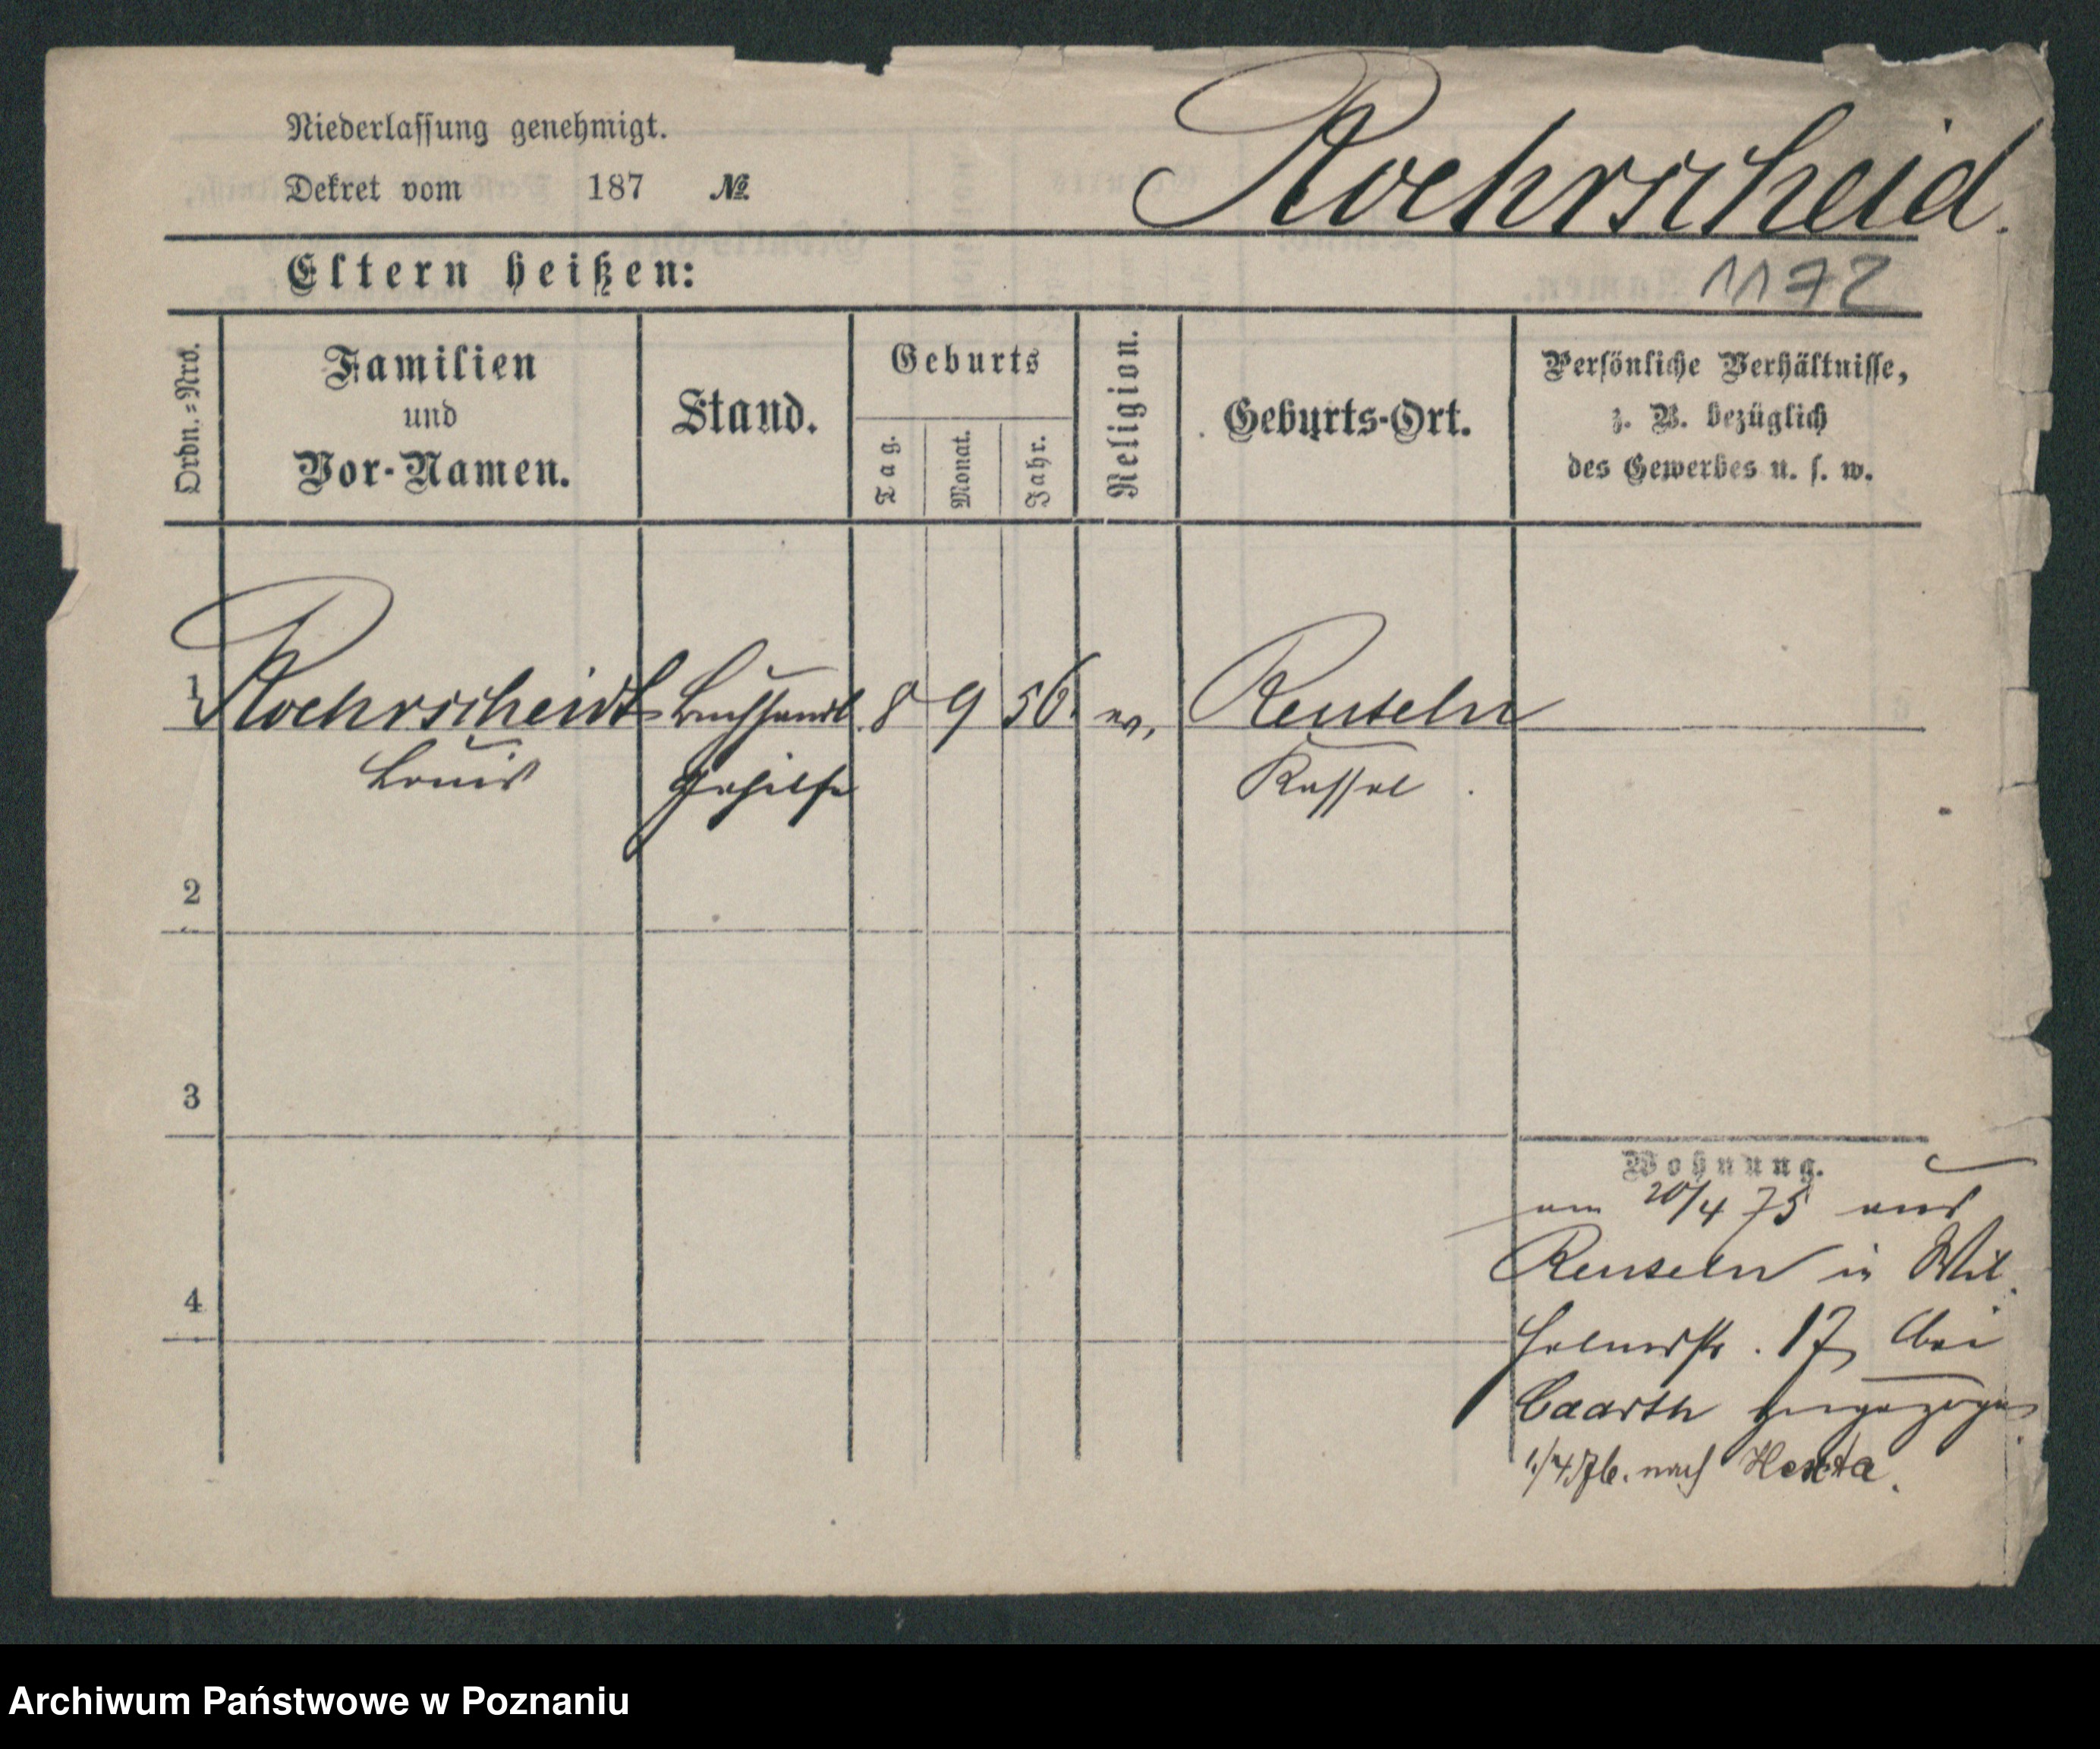 Niederlassung genehmigt.
Dekret vom 187 №
Roehrscheid.
Eltern heißen:
1172
Ordn.-Nro.
Familien
und
Vor-Namen.
Stand.
Geburts
Tag.
Monat.
Jahr.
Religion.
Geburts-Ort.
Persönliche Verhältnisse,
z. B. bezüglich
des Gewerbes u. s. w.
1 Roehrscheidt Buchhandl 8 9 56. ev. Renteln
Louis Gehilfe Kassel.
2
3
4
Wohnung.
am 20/4 75 aus
Renteln in Wil
helmstr. 17 bei
zugezogen
1/4 76. nach
Archiwum Państwowe w Poznaniu